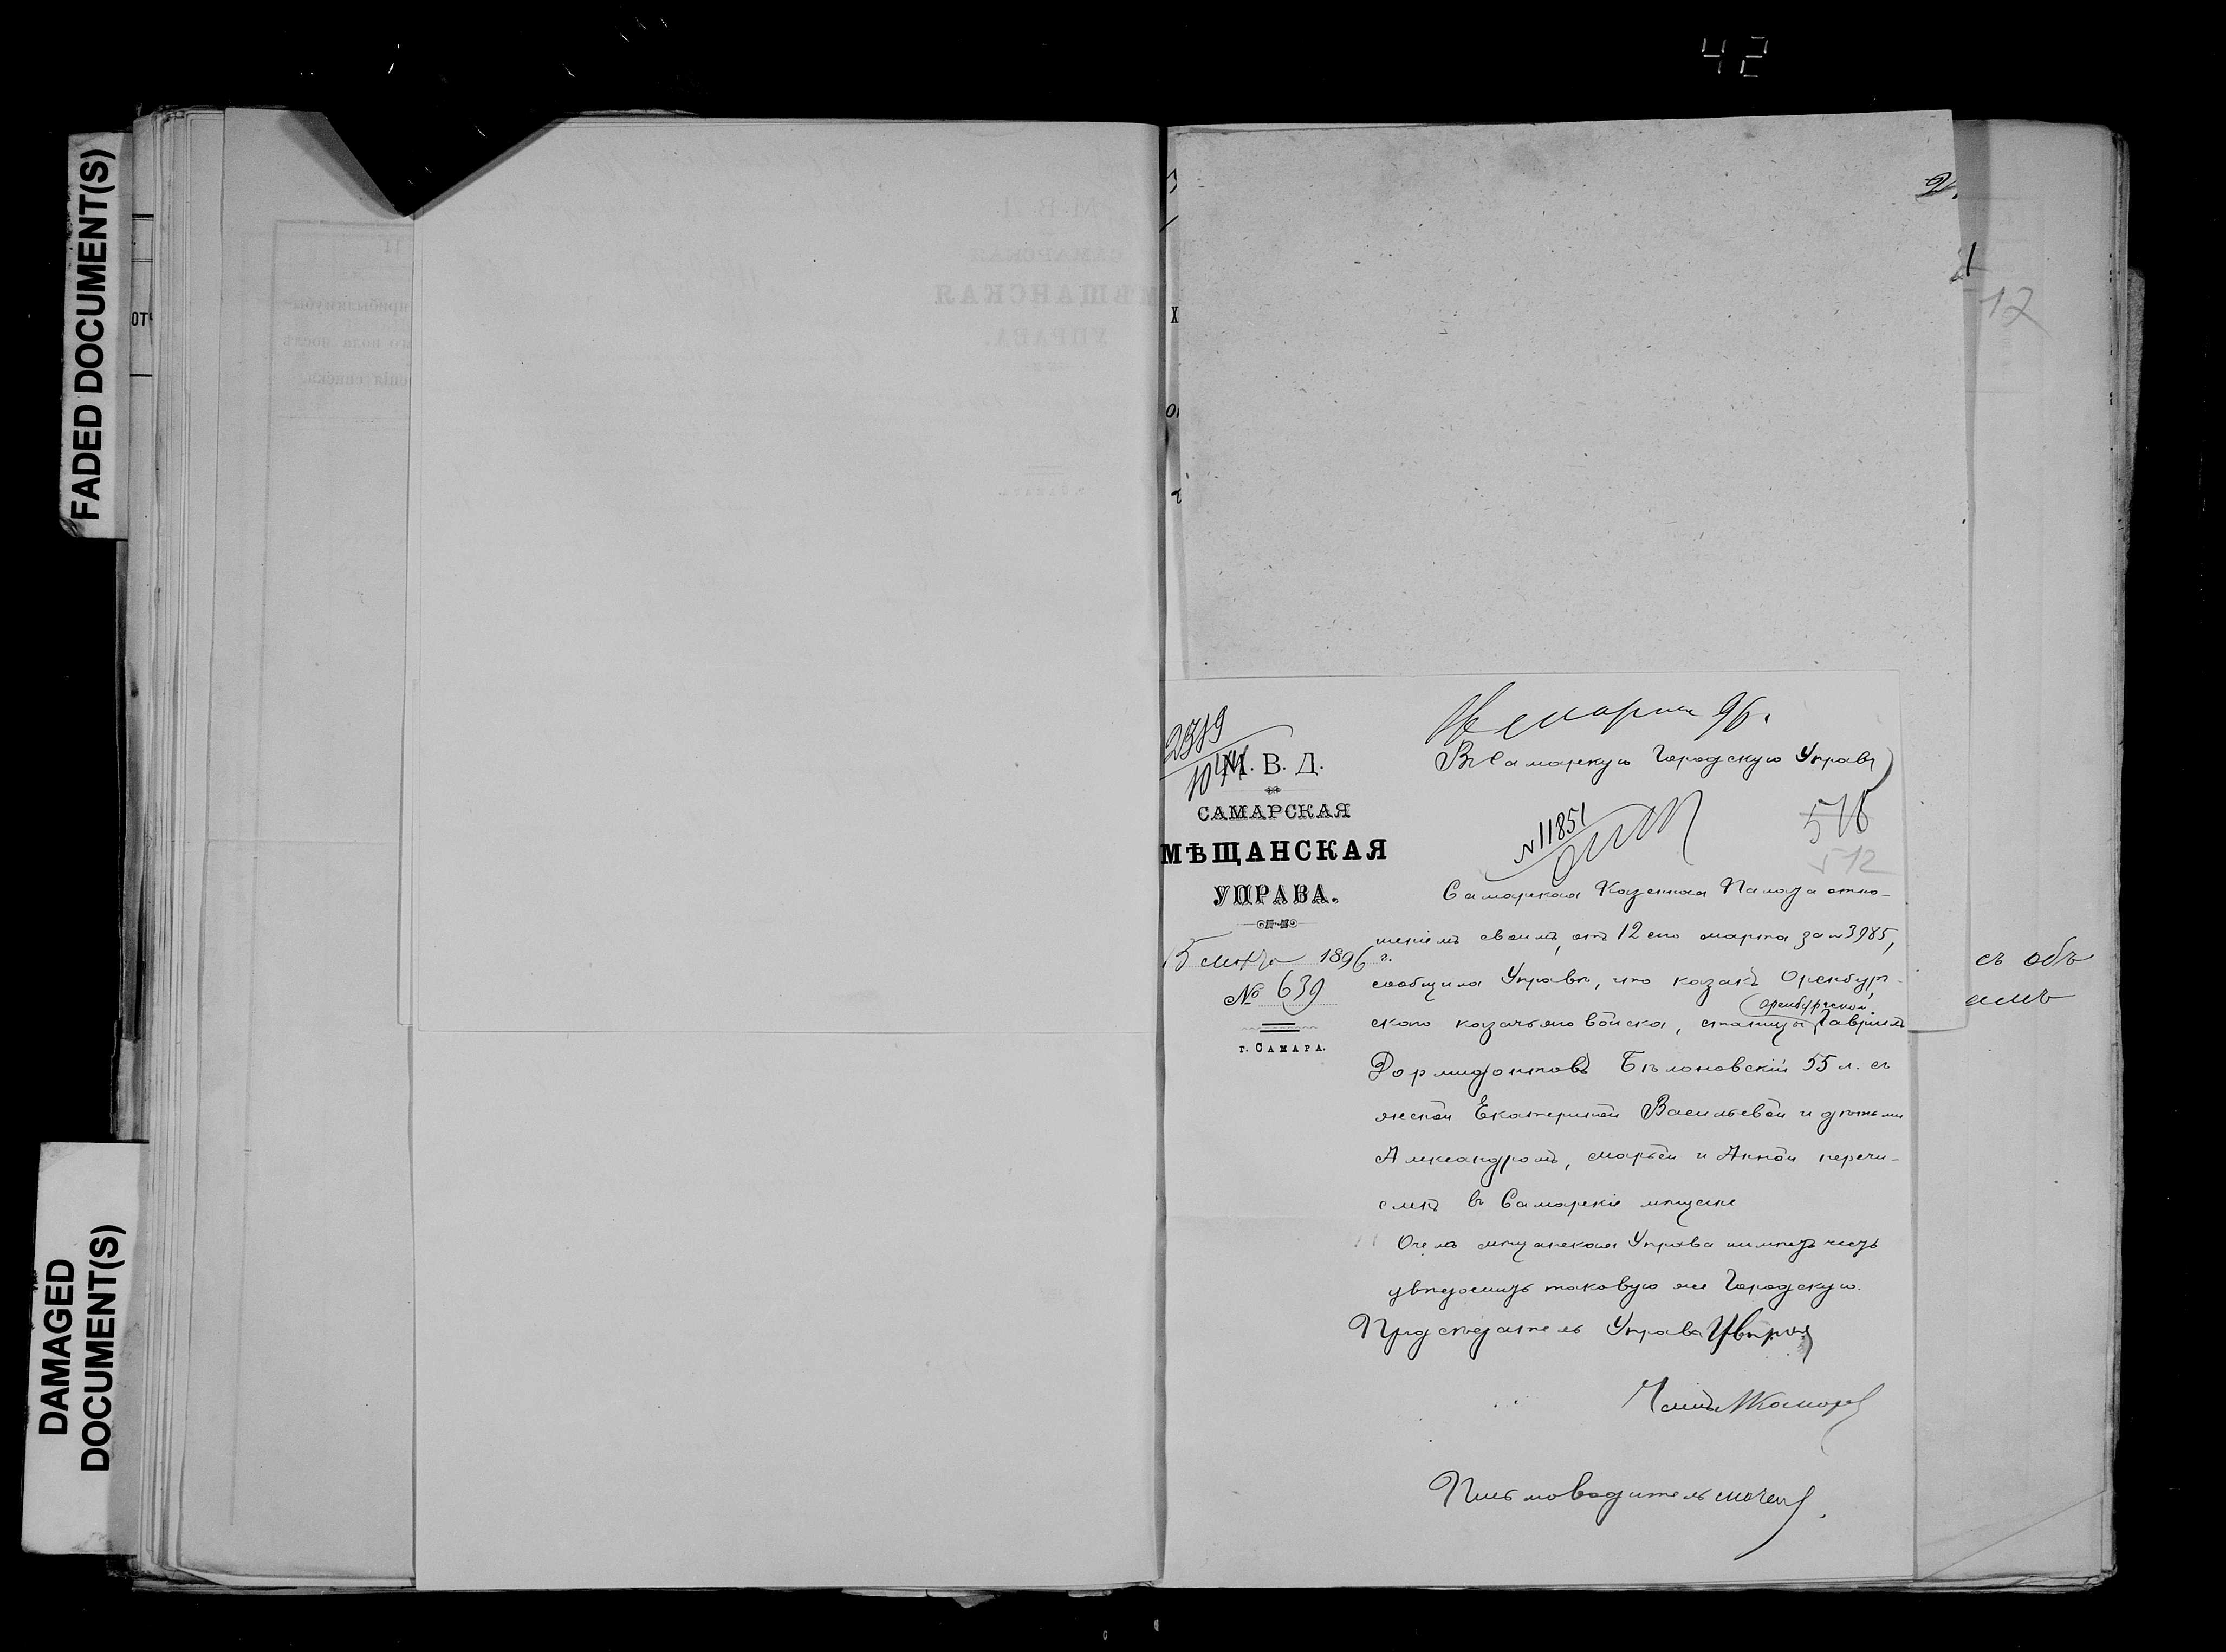 42
FADED DOCUMENT(S)
DAMAGED
DOCUMENT(S)
12
марта 96.
2389
М. В. Д.
САМАРСКАЯ
МѢЩАНСКАЯ
УПРАВА.
15 марта 1896 г.
№ 639
г. САМАРА.
Въ Самарскую Городскую Управу
№ 11851
518
512
Самарская Казенная Палата отно-
шеніемъ своимъ, отъ 12 сего марта за № 3985,
сообщила Управѣ, что казакъ Оренбург-
скаго казачьяго войска, станицы Оренбургской, Гавріилъ
Дормидонтовъ Бѣлоновскій 55 л. съ
женой Екатериной Васильевой и дѣтьми
Александромъ, Марьей и Анной перечи-
сленъ въ Самарскіе мѣщане
О чемъ мѣщанская Управа имѣетъ честь
увѣдомить таковую же Городскую.
Предсѣдатель Управы
Членъ
Письмоводитель
съ объ